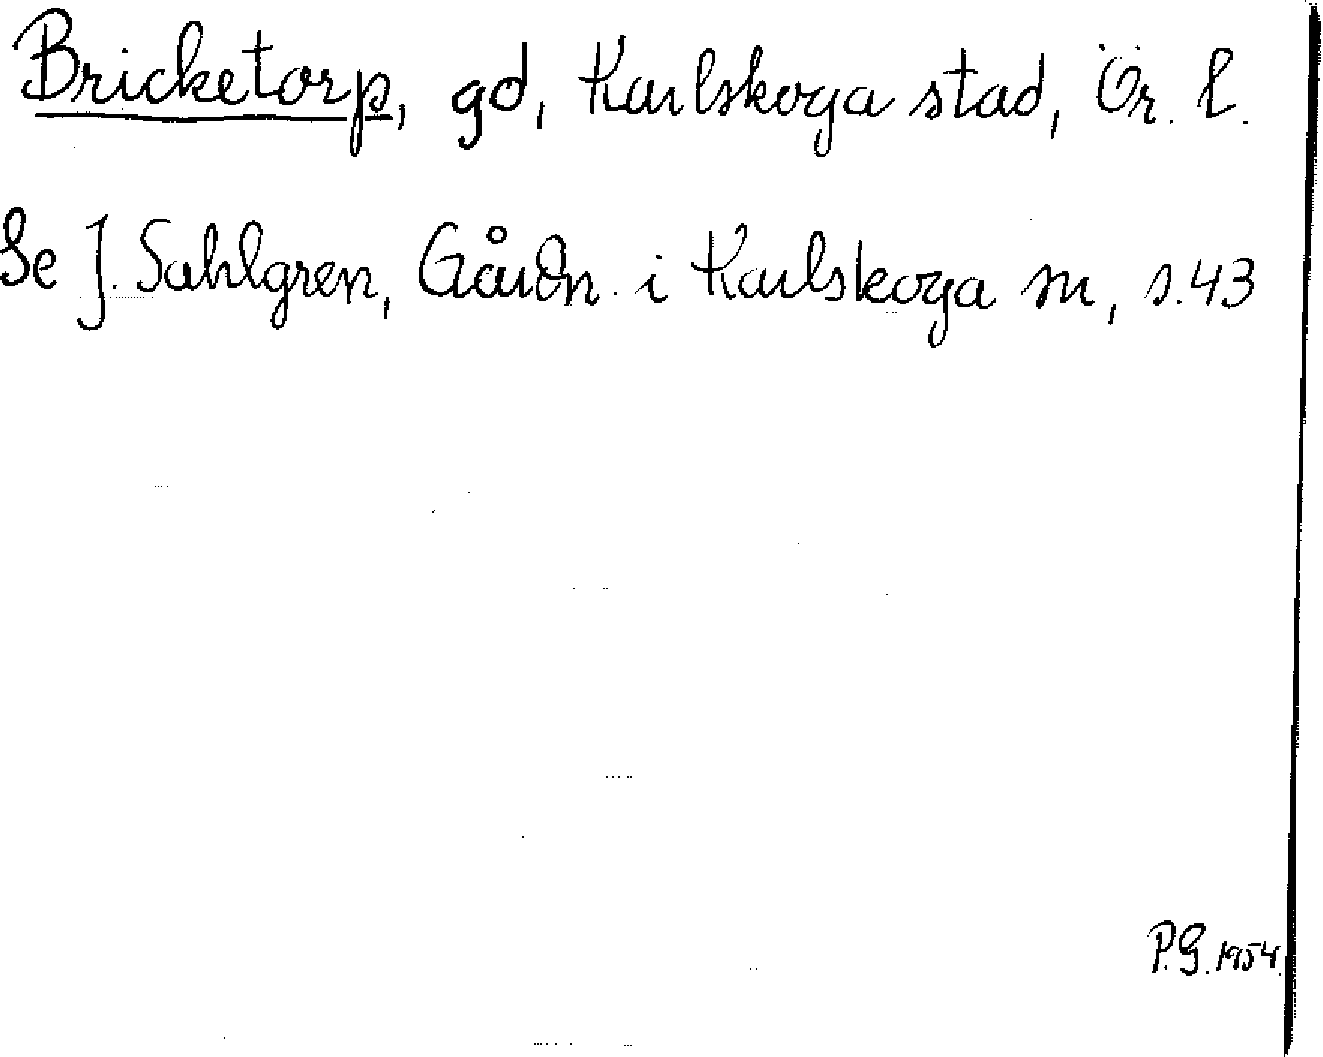 Bricketorp, gd, Karlskoga stad, Ör. l.
Se J. Sahlgren, Gårdn. i Karlskoga sn, s. 43
P.G. 1954.